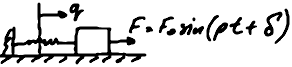 q
F = F₀ sin(pt + δ)